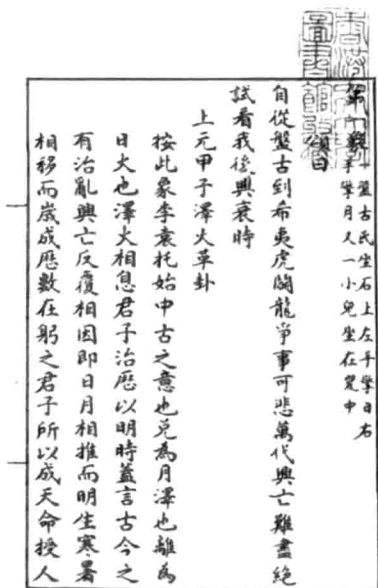 盤古氏坐石上左手擎日右
手擎月又一小兒坐在
頌曰
自從盤古到希夷虎鬪龍爭事可悲萬代興亡難盡絕
試看我後興衰時
上元甲子澤火革卦
按此象李袁托始中古之意也兌為月澤也離為
日火也澤火相息君子治歷以明時蓋言古今之
有治亂興亡反覆相因即日月相推而明生寒暑
相移而歲成歷數在躬之君子所以成天命授人